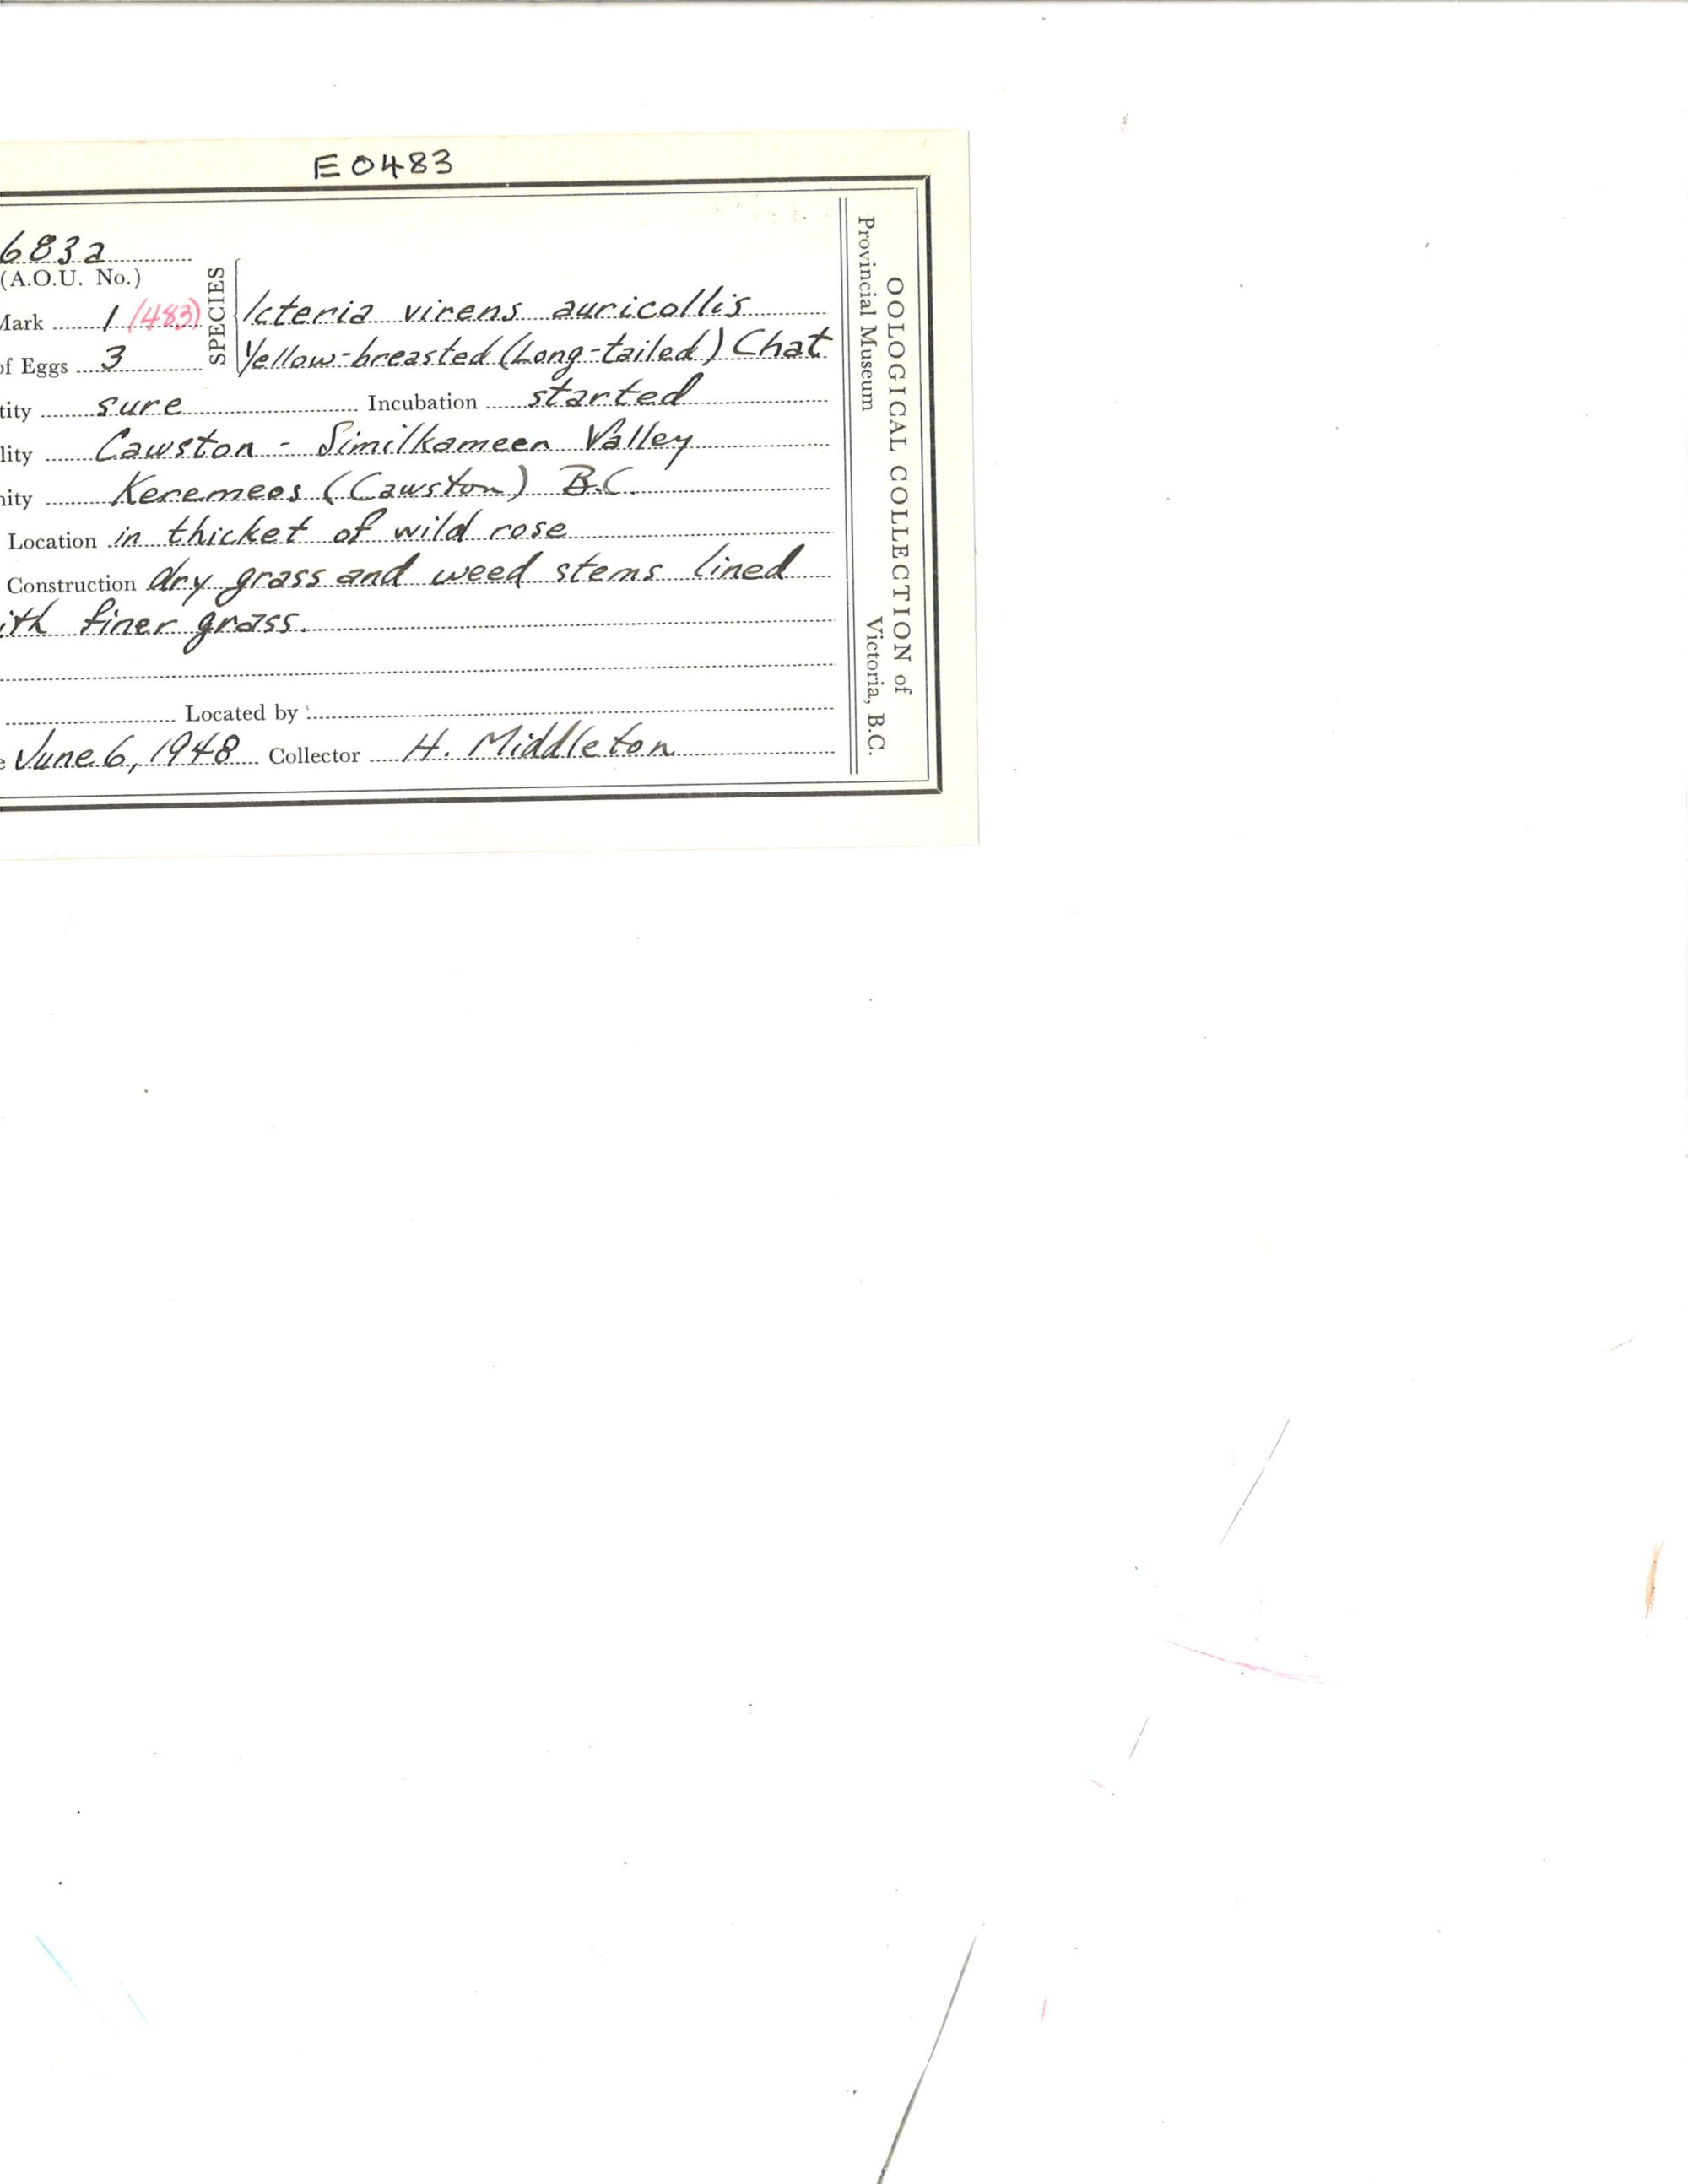 E0483
683a
(A.O.U. No.)
Mark 1 (483)
SPECIES
Icteria virens auricollis
of Eggs 3
Yellow-breasted (Long-tailed) Chat
tity sure Incubation started
lity Cawston - Similkameen Valley
nity Keremeos (Cawston) B.C.
Location in thicket of wild rose
Construction dry grass and weed stems lined
ith finer grass.
Located by
e June 6, 1948 Collector H. Middleton
OOLOGICAL COLLECTION of
Provincial Museum Victoria, B.C.